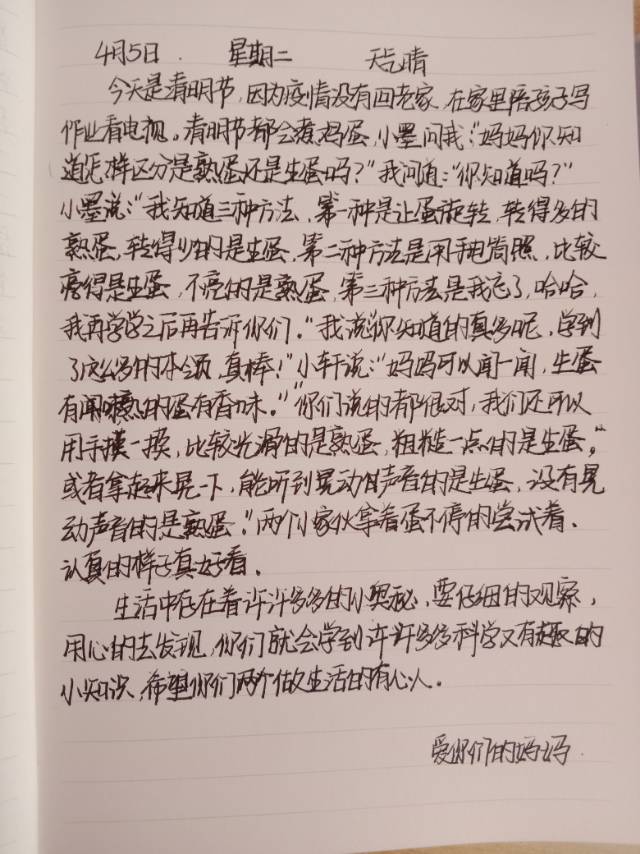 4月5日 星期二 天气晴
今天是清明节,因为疫情没有回老家,在家里陪孩子写
作业看电视。清明节都会煮鸡蛋,小墨问我:“妈妈你知
道怎样区分是熟蛋还是生蛋吗?”我问道:“你知道吗?”
小墨说:“我知道三种方法,第一种是让蛋旋转,转得多的
熟蛋,转得少的是生蛋,第二种方法是用手电筒照,比较
亮得是生蛋,不亮的是熟蛋,第三种方法是我忘了,哈哈,
我再学学之后再告诉你们。”我说:“你知道的真多呢,学到
了这么多的本领,真棒!”小轩说:“妈妈可以闻一闻,生蛋
有闻熟的蛋有香味。”“你们说的都很对,我们还可以
用手摸一摸,比较光滑的是熟蛋,粗糙一点的是生蛋,”
或者拿起来晃一下,能听到晃动声音的是生蛋,没有晃
动声音的是熟蛋。”两个小家伙拿着蛋不停的尝试着、
认真的样子真好看。
生活中存在着许许多多的小奥秘,要仔细的观察,
用心的去发现,你们就会学到许许多多科学又有趣的
小知识,希望你们两个做生活的有心人。
爱你们的妈妈